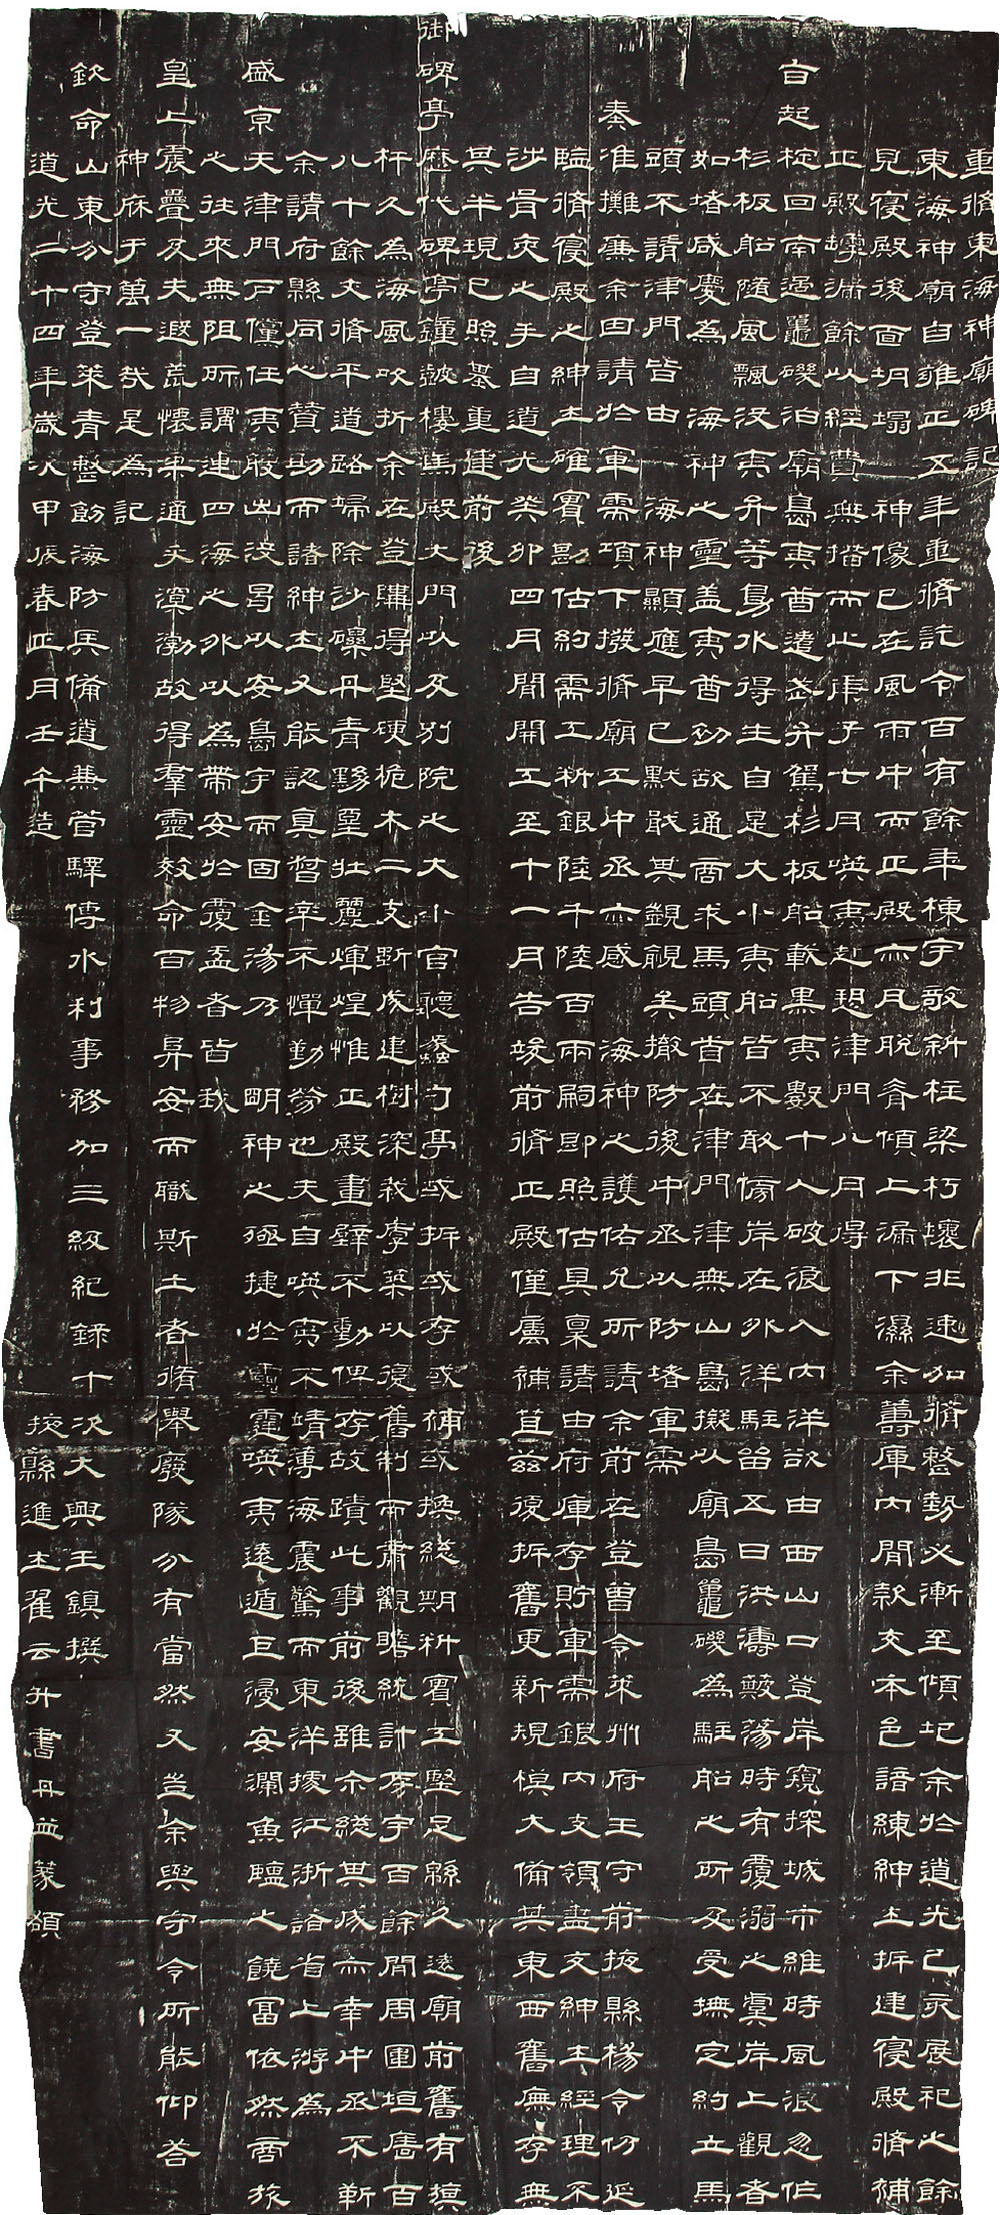 重脩東海神廟碑記
東海神廟自雍正五年重脩訖今百有餘年棟宇敝斜柱梁朽壞非速加脩整勢必漸至傾圮余於道光己亥展祀之餘
見寑殿後面坍塌神像已在風雨中而正殿亦瓦脫脊傾上漏下濕余籌庫內閒款交本邑諳練紳士拆建寑殿脩補
正殿罅漏餘以經費無措而止庚子七月㗸夷赴趨津門八月得
旨起椗回南過鼍磯泊廟島夷酋遣盜弁駕杉板船載黑夷數十人破浪入內洋欲由西山口登岸窺探城市維時風浪忽作
杉板船隨風飄沒夷弁等鳧水得生自是大小夷船皆不敢傍岸在外洋駐留五日洪濤簸蕩時有覆溺之虞岸上觀者
如堵咸慶為海神之靈蓋夷酋初欲通商求馬頭旨在津門津無山島擬以廟島鼍磯為駐船之所及受撫定約立馬
頭不請津門皆由海神顯應早已默戢其覬覦矣撤防後中丞以防堵軍需
奏准攤廉余因請於軍需項下撥脩廟工中丞亦感海神之護佑允所請余前在登曾令萊州府王守前掖縣楊令仿延
臨脩寑殿之紳士確實勘估約需工料銀陸千陸百兩嗣即照估具稟請由府庫存貯軍需銀內支領盡交紳士經理不
涉胥吏之手自道光癸卯四月開工至十一月告竣前脩正殿僅屬補苴茲復拆舊更新規模大備其東西舊廡存無
其半現已照基重建前後
御碑亭歷代碑亭鐘皷樓馬殿大門以及別院之大小官廳丞亭或拆或存或補或換總期料實工堅足緜久遠廟前舊有旗
杆久為海風吹折余在登購得堅硬桅木二支斲成建樹深栽厚築以復舊制而肅觀瞻統計厚宇百餘間周圍垣廧百
八十餘丈脩平道路掃除沙礫丹青黝堊壯麗輝煌惟正殿畫壁不動俾存故蹟此事前後雖余總其成亦幸中丞不靳
余請府縣同心贊助而諸紳士又能認真督率不憚勤勞也夫自㗸夷不靖薄海震驚而東洋據江浙諸省上游為
盛京天津門戶儻任夷艘出沒曷以安島宇而固金湯乃 朙神之亟捷於靈霆㗸夷遠遁巨浸安瀾魚鹽之饒富依然商旅
之往來無阻所謂連四海之外以為帶安於覆盂者皆我
皇上震疊及夫遐荒懷柔通夫溟渤故得羣靈效命百物昇安而職斯土者脩舉廢隊分有當然又豈余與守令所能仰荅
神庥于萬一哉是為記
欽命山東分守登萊青整飭海防兵備道兼管驛傳水利事務加三級紀錄十次大興王鎮撰
道光二十四年歲次甲辰春正月壬午造 掖縣進士翟云升書丹並篆額